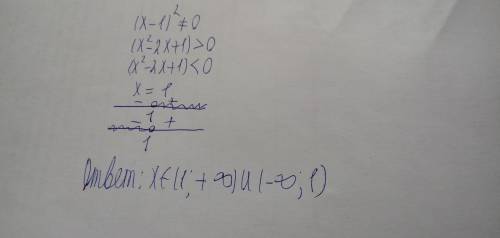 (x-1)² ≠ 0
(x²-2x+1)>0
(x²-2x+1)<0
x = 1
1
- +
1
Ответ: x∈(1; +∞)U(-∞; 1)